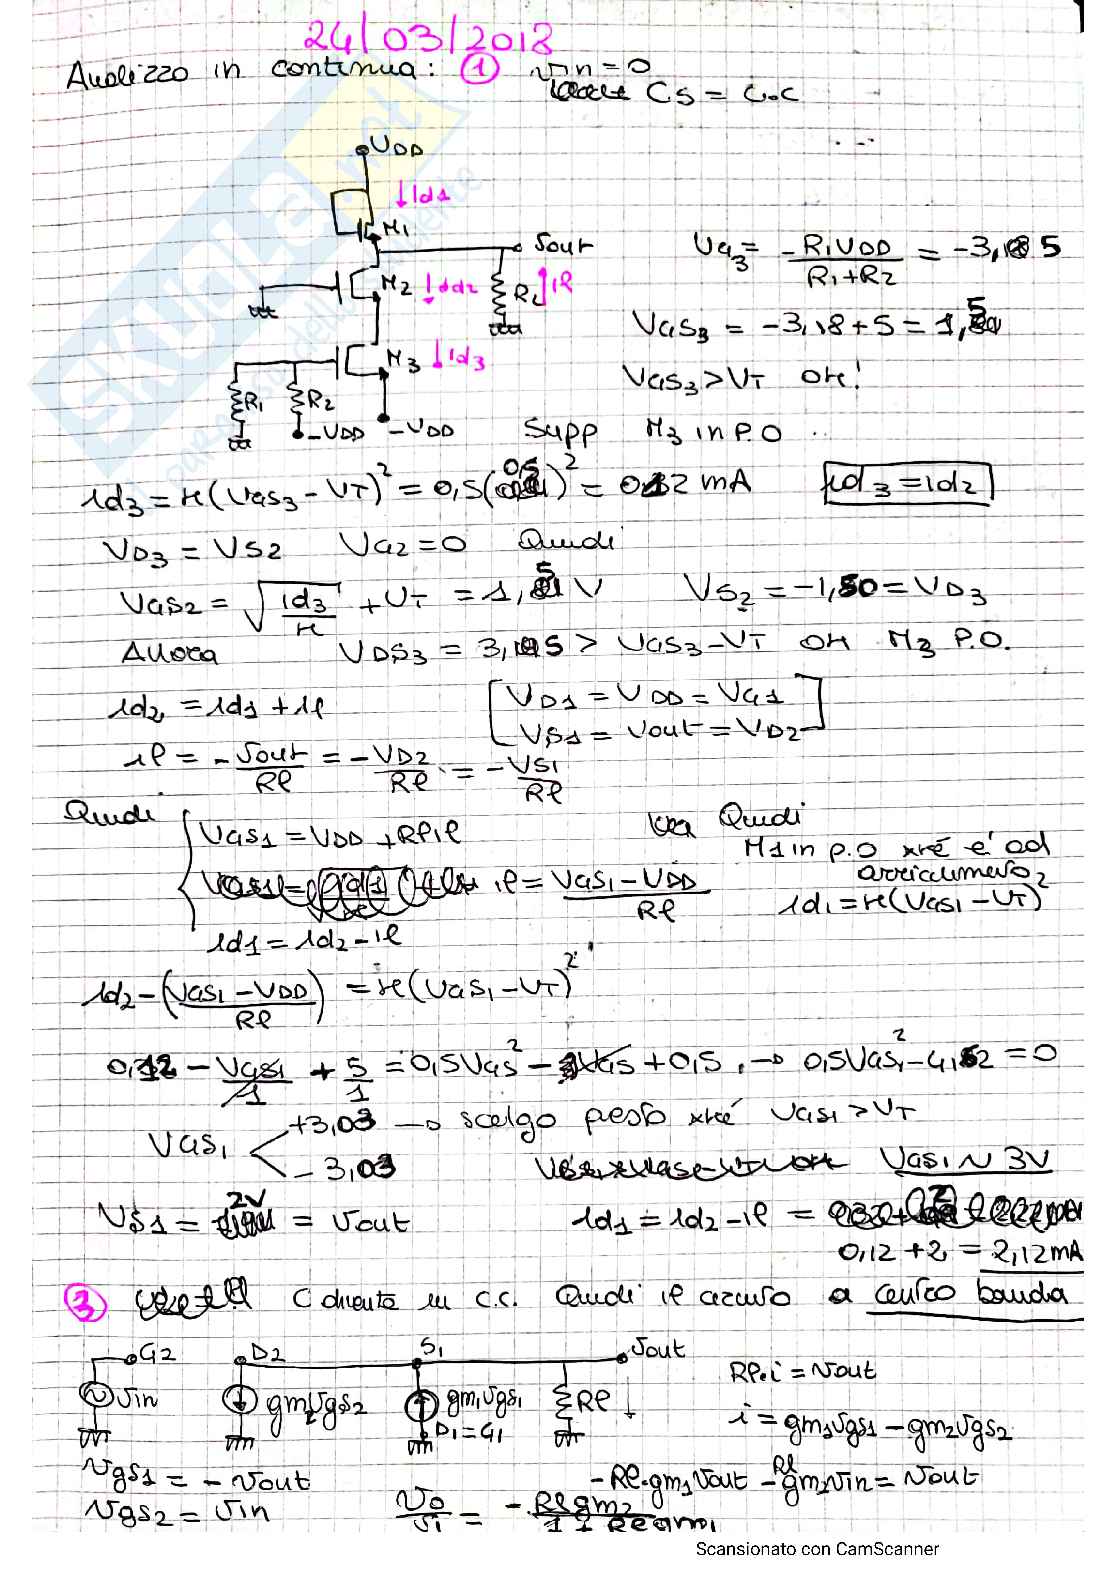 24/03/2018
Analizzo in continua: ① vin = 0
Cs = C.C
VDD
Id1
M1
vout
M2
Id2
Rl
il
M3
Id3
R1
R2
-VDD
-VDD
VG3 = -R1VDD / R1+R2 = -3,5
VGS3 = -3,18+5 = 1,5
VGS3 > VT OK!
Supp M3 in P.O
id3 = K(VGS3 - VT)² = 0,5(0,5)² = 0,12 mA
id3 = id2
VD3 = VS2 VG2 = 0 Quindi
VGS2 = √id3/K + VT = 1,5 V VS2 = -1,50 = VD3
Allora VDS3 = 3,5 > VGS3 - VT OK M3 P.O.
id2 = id1 + il
[VD1 = VDD = VG1
VS1 = vout = VD2]
il = -vout/Rl = -VD2/Rl = -VS1/Rl
Quindi
VGS1 = VDD + Rl il
il = VGS1 - VDD / Rl
id1 = id2 - il
Quindi
M1 in P.O xké è ad
arricchimento
id1 = K(VGS1 - VT)²
id2 - (VGS1 - VDD / Rl) = K(VGS1 - VT)²
0,12 - VGS1/1 + 5/1 = 0,5VGS² - VGS + 0,5 → 0,5VGS1² - 4,62 = 0
VGS1
+3,03 → scelgo questo xké VGS1 > VT
-3,03
VGS1 ~ 3V
VS1 = 2V = vout
id1 = id2 - il =
0,12 + 2 = 2,12 mA
③ C diventa un c.c. Quindi il circuito a centro banda
G2
D2
S1
vout
vin
gm2vgs2
gm1vgs1
D1=G1
Rl
Rl·i = vout
i = gm1vgs1 - gm2vgs2
vgs1 = -vout
vgs2 = vin
-Rl·gm1vout - Rl gm2vin = vout
vo/vi = -Rlgm2 / 1 + Rlgm1
Scansionato con CamScanner